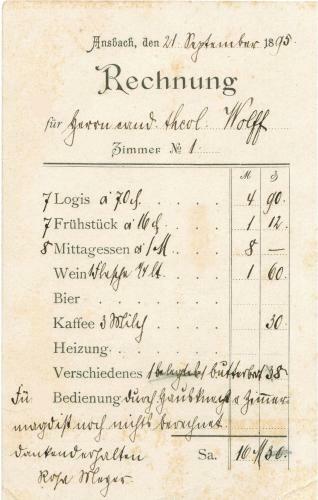 Ansbach, den 21. September 1895.
Rechnung
für Herrn cand. theol. Wolff
Zimmer № 1.
M ₰
7 Logis à 70 ₰. 4 90.
7 Frühstück à 16 ₰. 1 12.
8 Mittagessen à 1 M. 8 —
Wein 1/4 lt. 1 60
Bier
Kaffee 3 Milch 30.
Heizung
Verschiedenes 1 belegtes Butterbrot 38
Bedienung durch Hausknecht &
magd ist noch nichts berechnet.
dankend erhalten
Sa. 16 M 30.